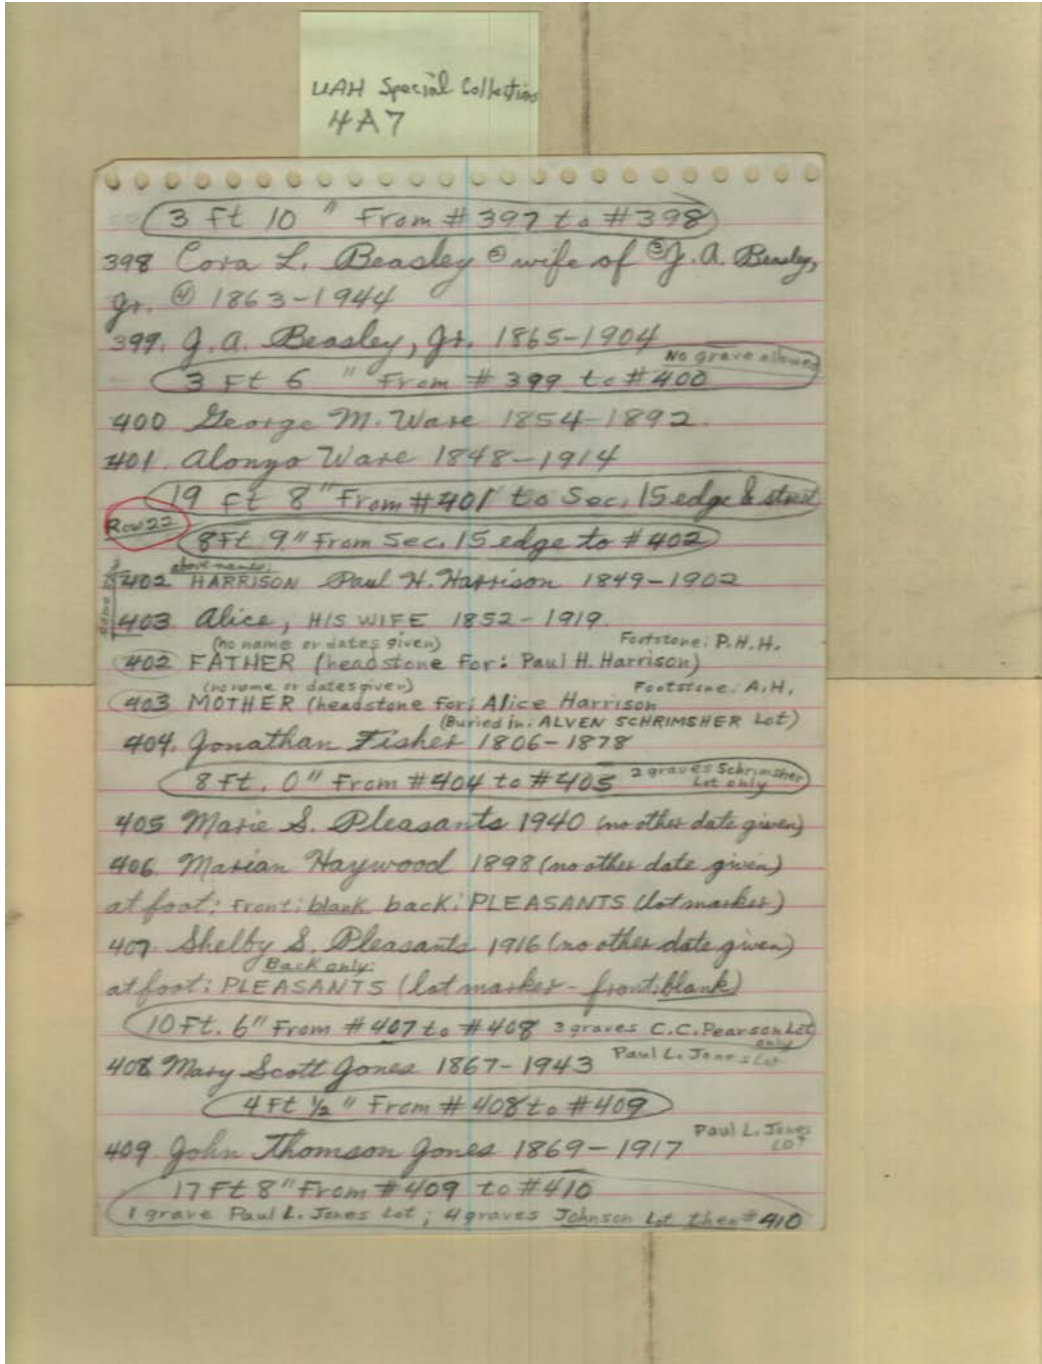 UAH Special Collections
4A7
3 Ft 10 " From # 397 to # 398
398 Cora L. Beasley ② wife of ③ J. A. Beasley,
Jr. ④ 1863-1944
399. J. A. Beasley, Jr. 1865-1904
No grave allowed
3 Ft 6 " From # 399 to # 400
400 George M. Ware 1854-1892.
401. Alonzo Ware 1848-1914
19 Ft 8" From #401 to Sec. 15 edge & street
Row 22
8 Ft 9" From Sec. 15 edge to # 402
above names:
402 HARRISON Paul H. Harrison 1849-1902
403. Alice, HIS WIFE 1852-1919.
(no name or dates given) Footstone: P.H.H.
402 FATHER (headstone For: Paul H. Harrison)
(no name or dates given) Footstone: A.H.
403 MOTHER (headstone For: Alice Harrison
(Buried in: ALVEN SCHRIMSHER Lot)
404. Jonathan Fisher 1806-1878
8 Ft. 0" From #404 to #405 2 graves Schrimsher
Lot only
405 Marie S. Pleasants 1940 (no other date given)
406. Marian Haywood 1898 (no other date given)
at foot: Front: blank back: PLEASANTS (lot marker)
407. Shelby S. Pleasants 1916 (no other date given)
Back only:
at foot: PLEASANTS (lot marker - front: blank)
10 Ft. 6" From #407 to #408 3 graves C.C. Pearson Lot
only
408 Mary Scott Jones 1867-1943 Paul L. Jones Lot
4 Ft ½" From # 408 to #409
409. John Thomson Jones 1869-1917 Paul L. Jones
LOT
17 Ft 8" From #409 to #410
1 grave Paul L. Jones Lot; 4 graves Johnson Lot then #410